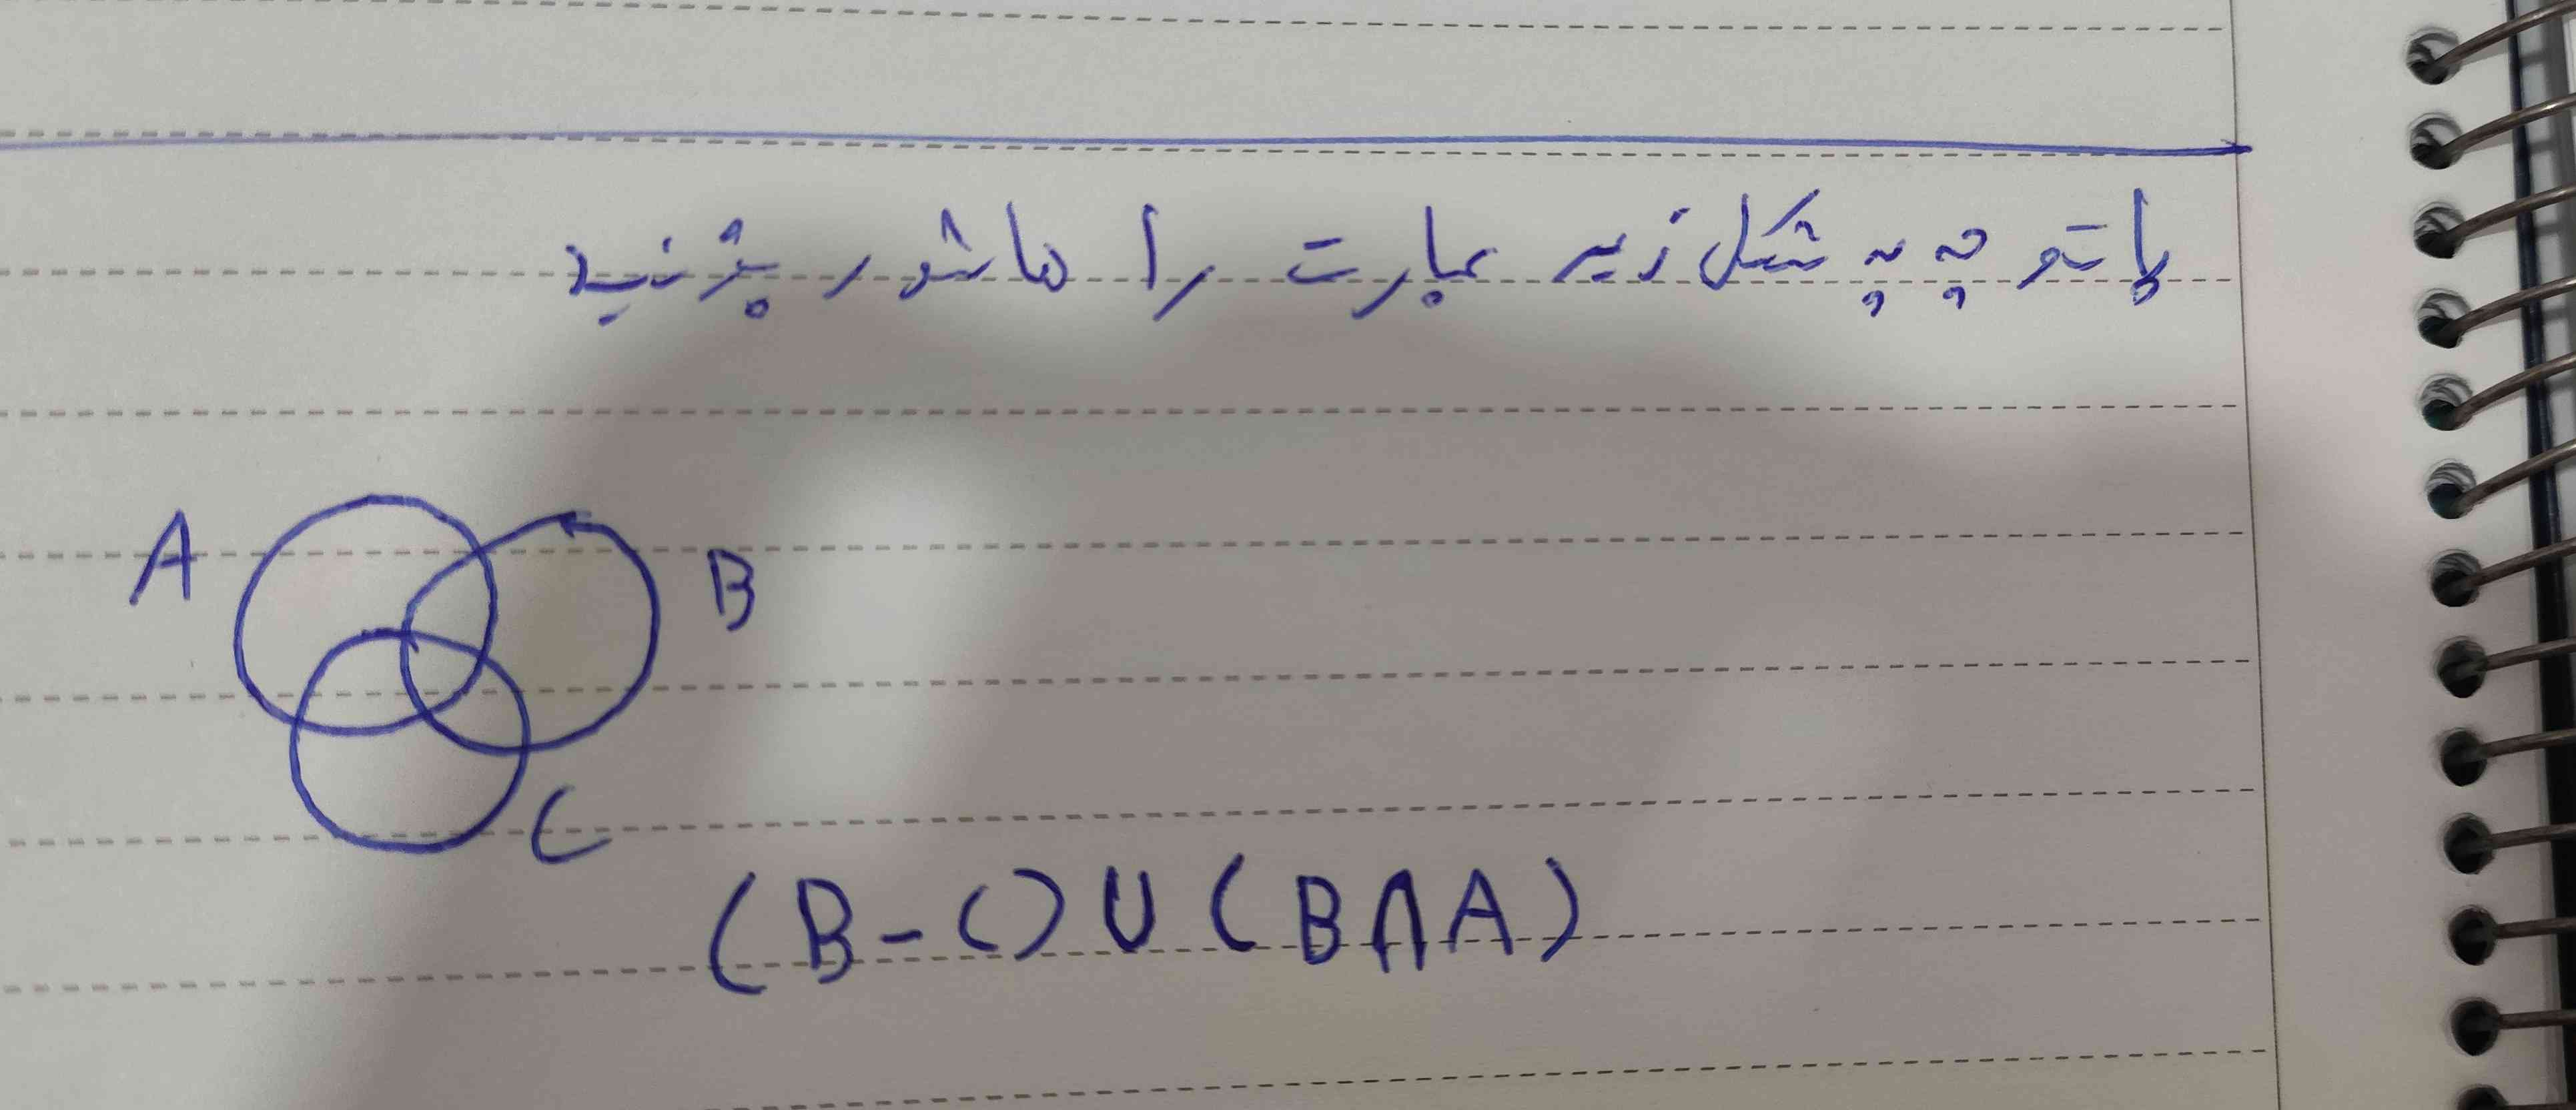 با توجه به شکل زیر عبارت را هاشور بزنید
A
B
C
(B-C)∪(B∩A)